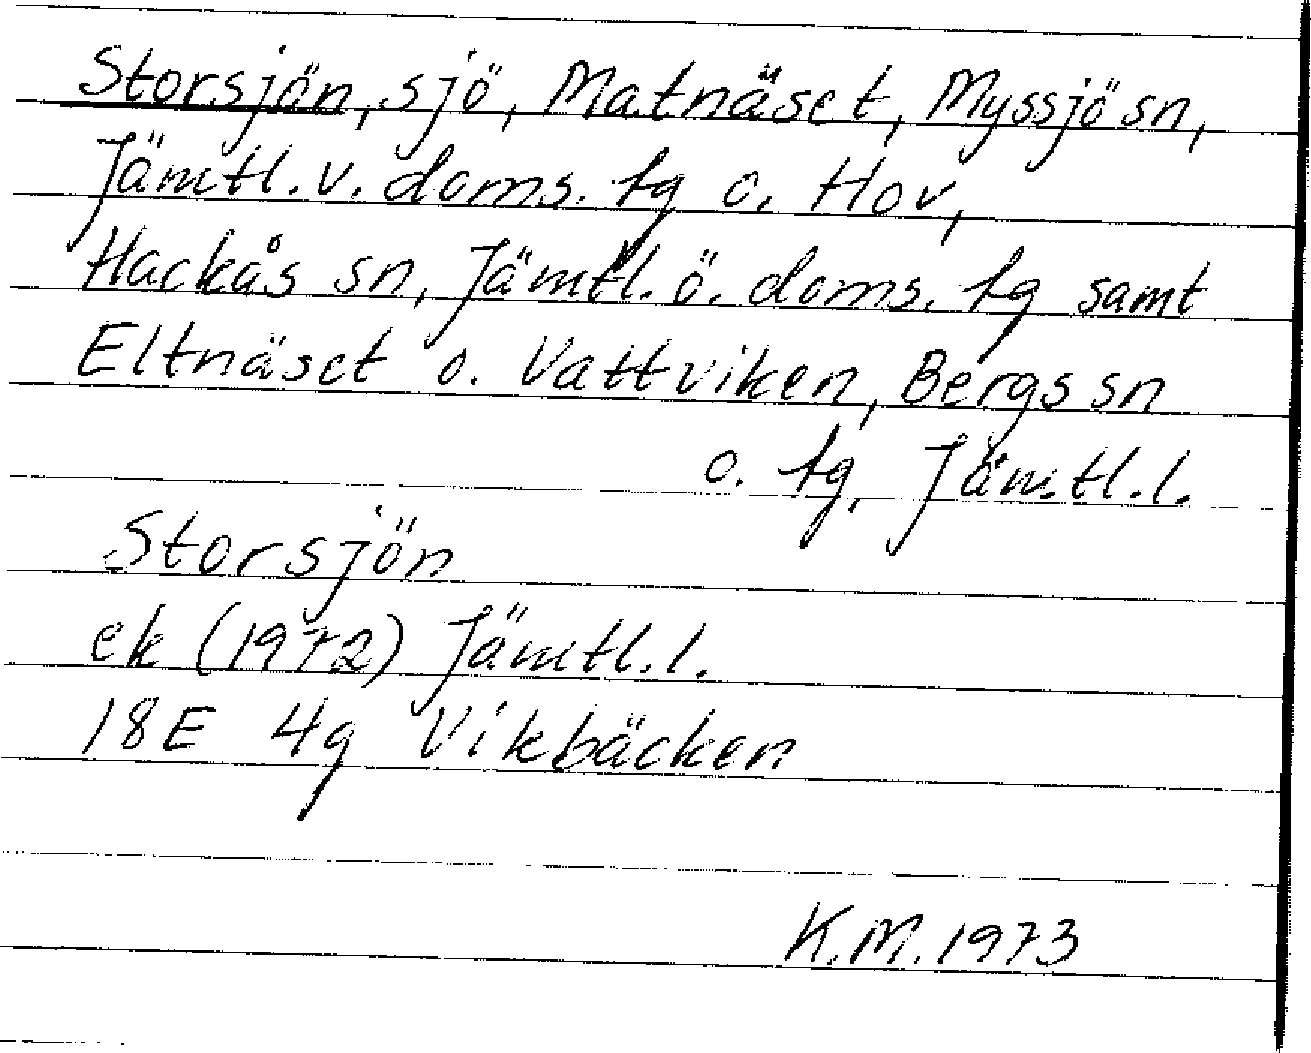 Storsjön, sjö, Matnäset, Myssjö sn,
Jämtl. v. doms. tg o. Hov,
Hackås sn, Jämtl. ö. doms. tg samt
Eltnäset o. Vattviken, Bergs sn
o. tg, Jämtl. l.
Storsjön
ek (1972) Jämtl. l.
18E 4g Vikbäcken
K.M. 1973